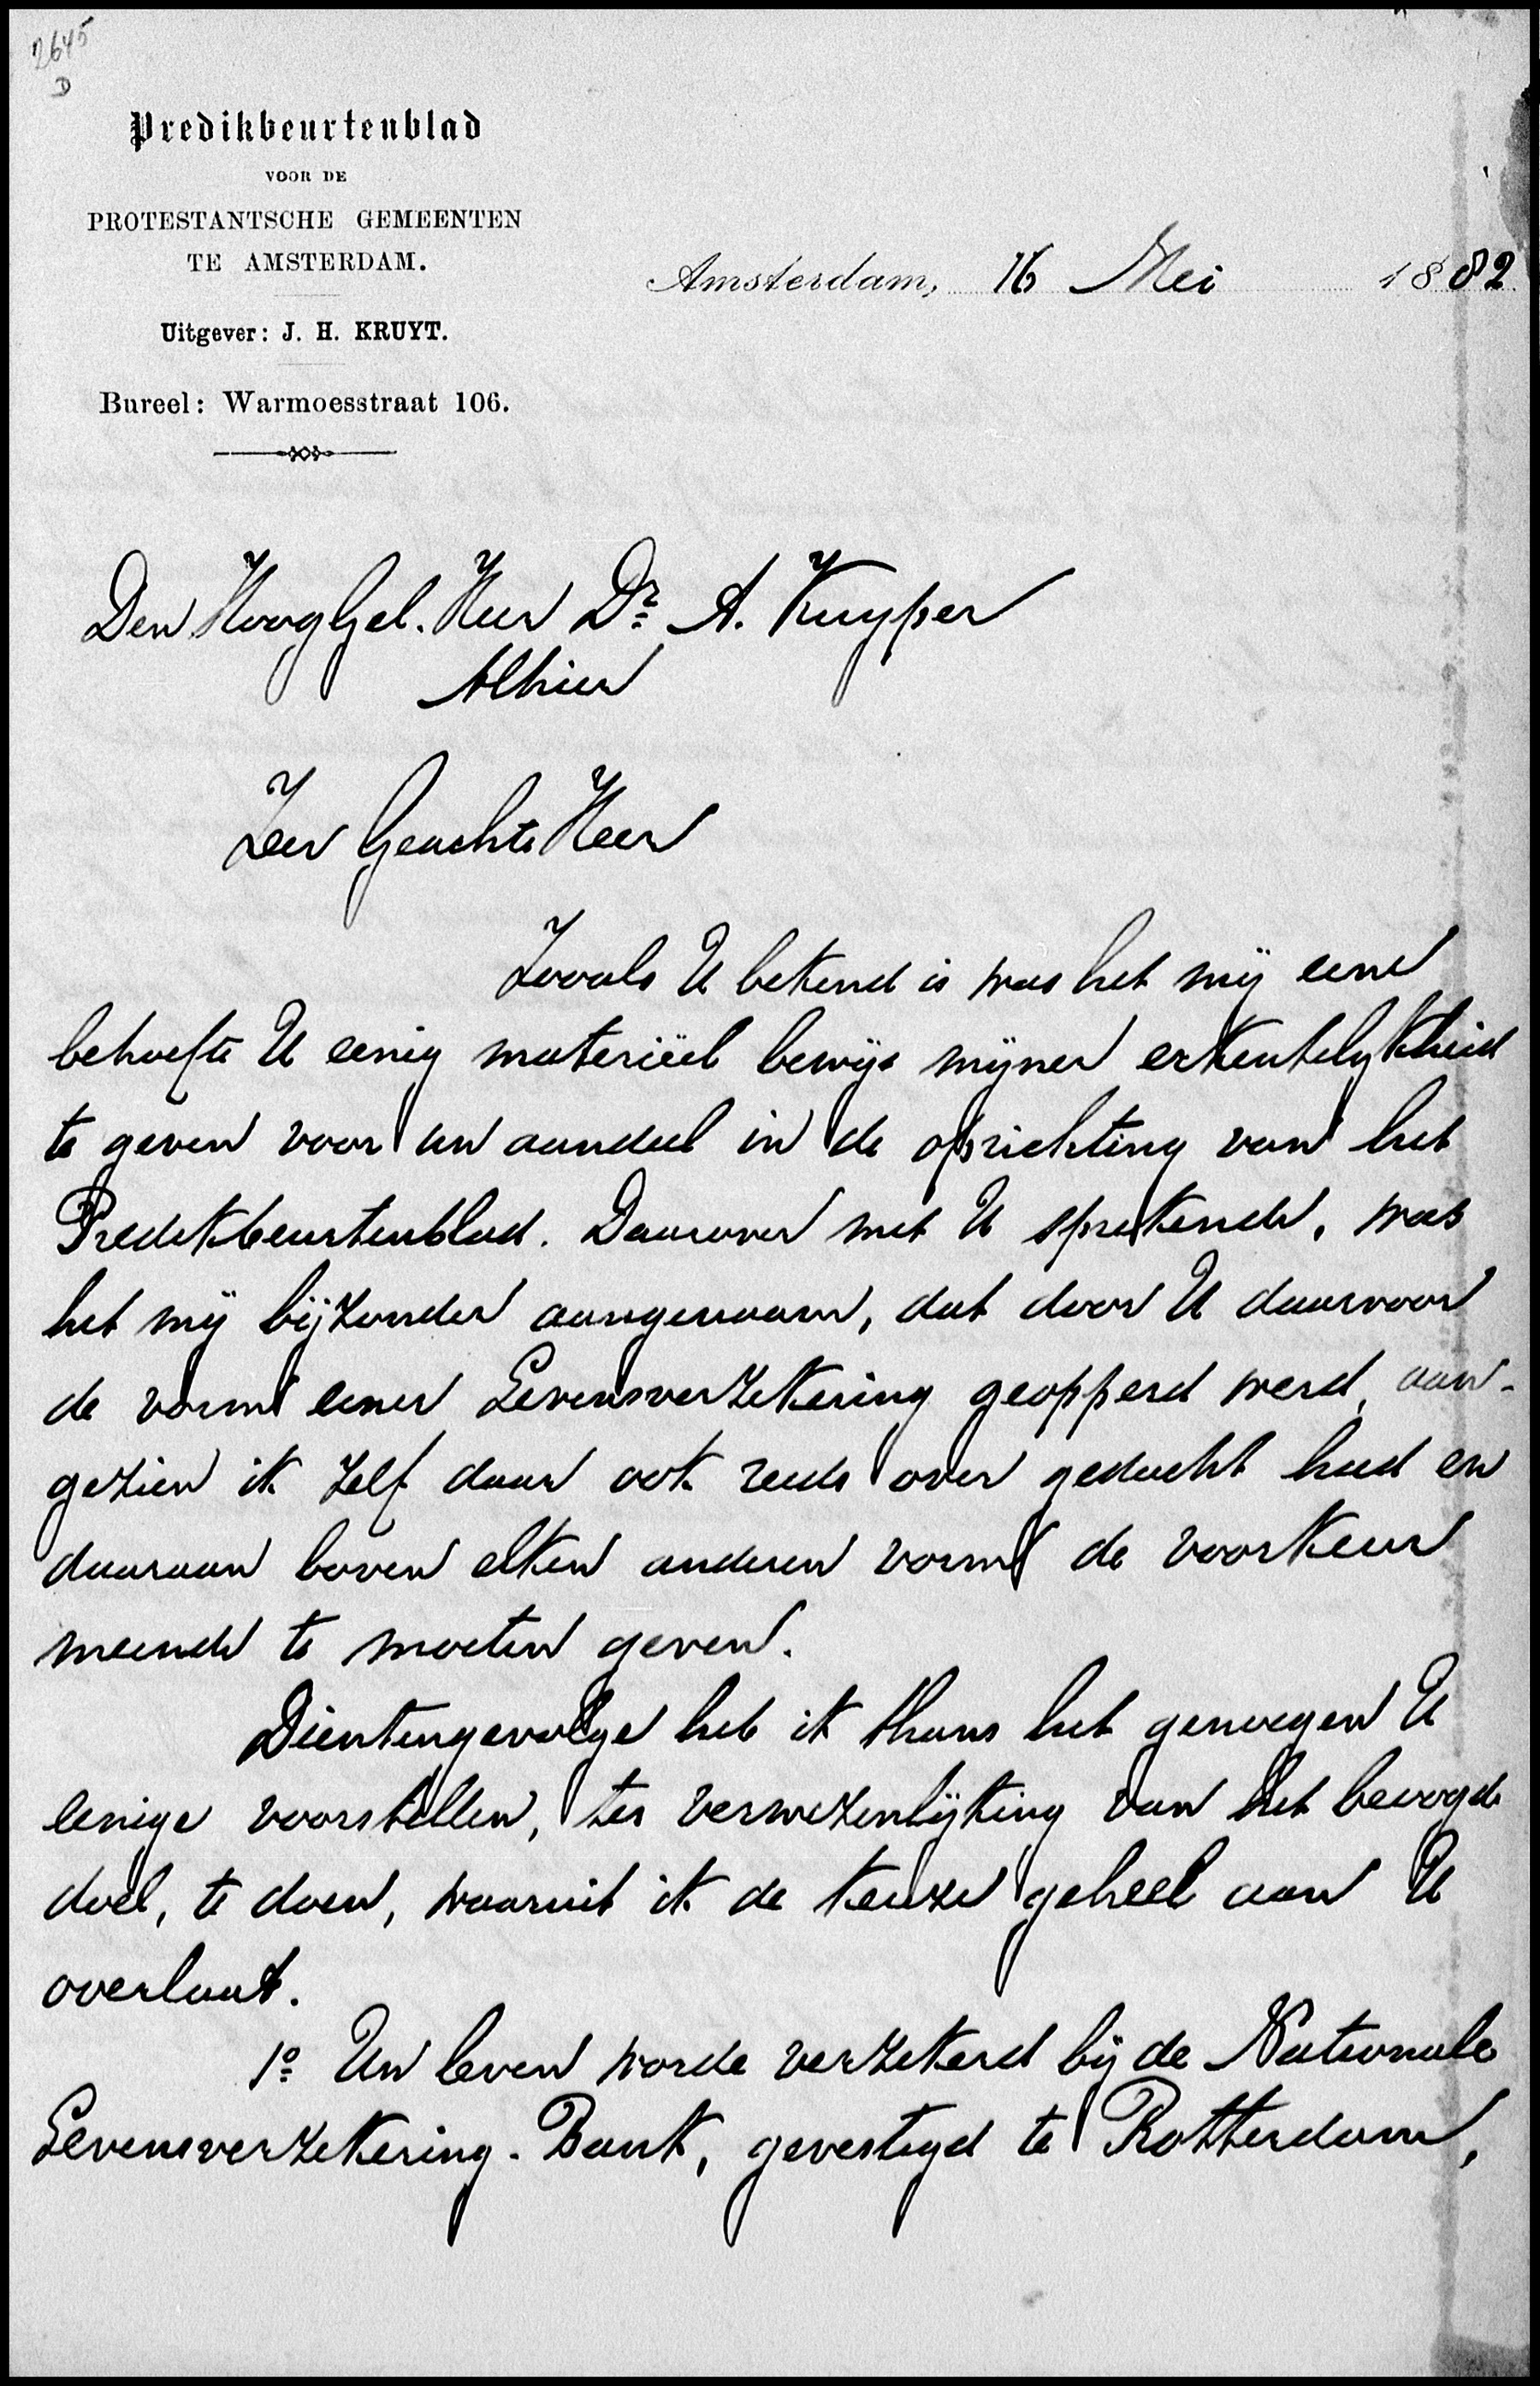 2645
D
Predikbeurtenblad
VOOR DE
PROTESTANTSCHE GEMEENTEN
TE AMSTERDAM.
Uitgever: J. H. KRUYT.
Bureel: Warmoesstraat 106.
Amsterdam, 16 Mei 1882
Den HoogGel. Heer Dr. A. Kuyper
Alhier
Zeer Geachte Heer
Zooals U bekend is was het mij eene
behoefte U eenig materiëel bewijs mijner erkentelykheid
te geven voor uw aandeel in de oprichting van het
Predikbeurtenblad. Daarover met U sprekende, was
het mij bijzonder aangenaam, dat door U daarvoor
de vorm eener Levensverzekering geopperd werd, aan-
gezien ik zelf daar ook reeds over gedacht had en
daaraan boven elken anderen vorm de voorkeur
meende te moeten geven.
Dientengevolge heb ik thans het genoegen U
eenige voorstellen, ter verwezenlijking van het beoogde
doel, te doen, waaruit ik de keuze geheel aan U
overlaat.
1o Uw leven worde verzekerd bij de Nationale
Levensverzekering-Bank, gevestigd te Rotterdam,